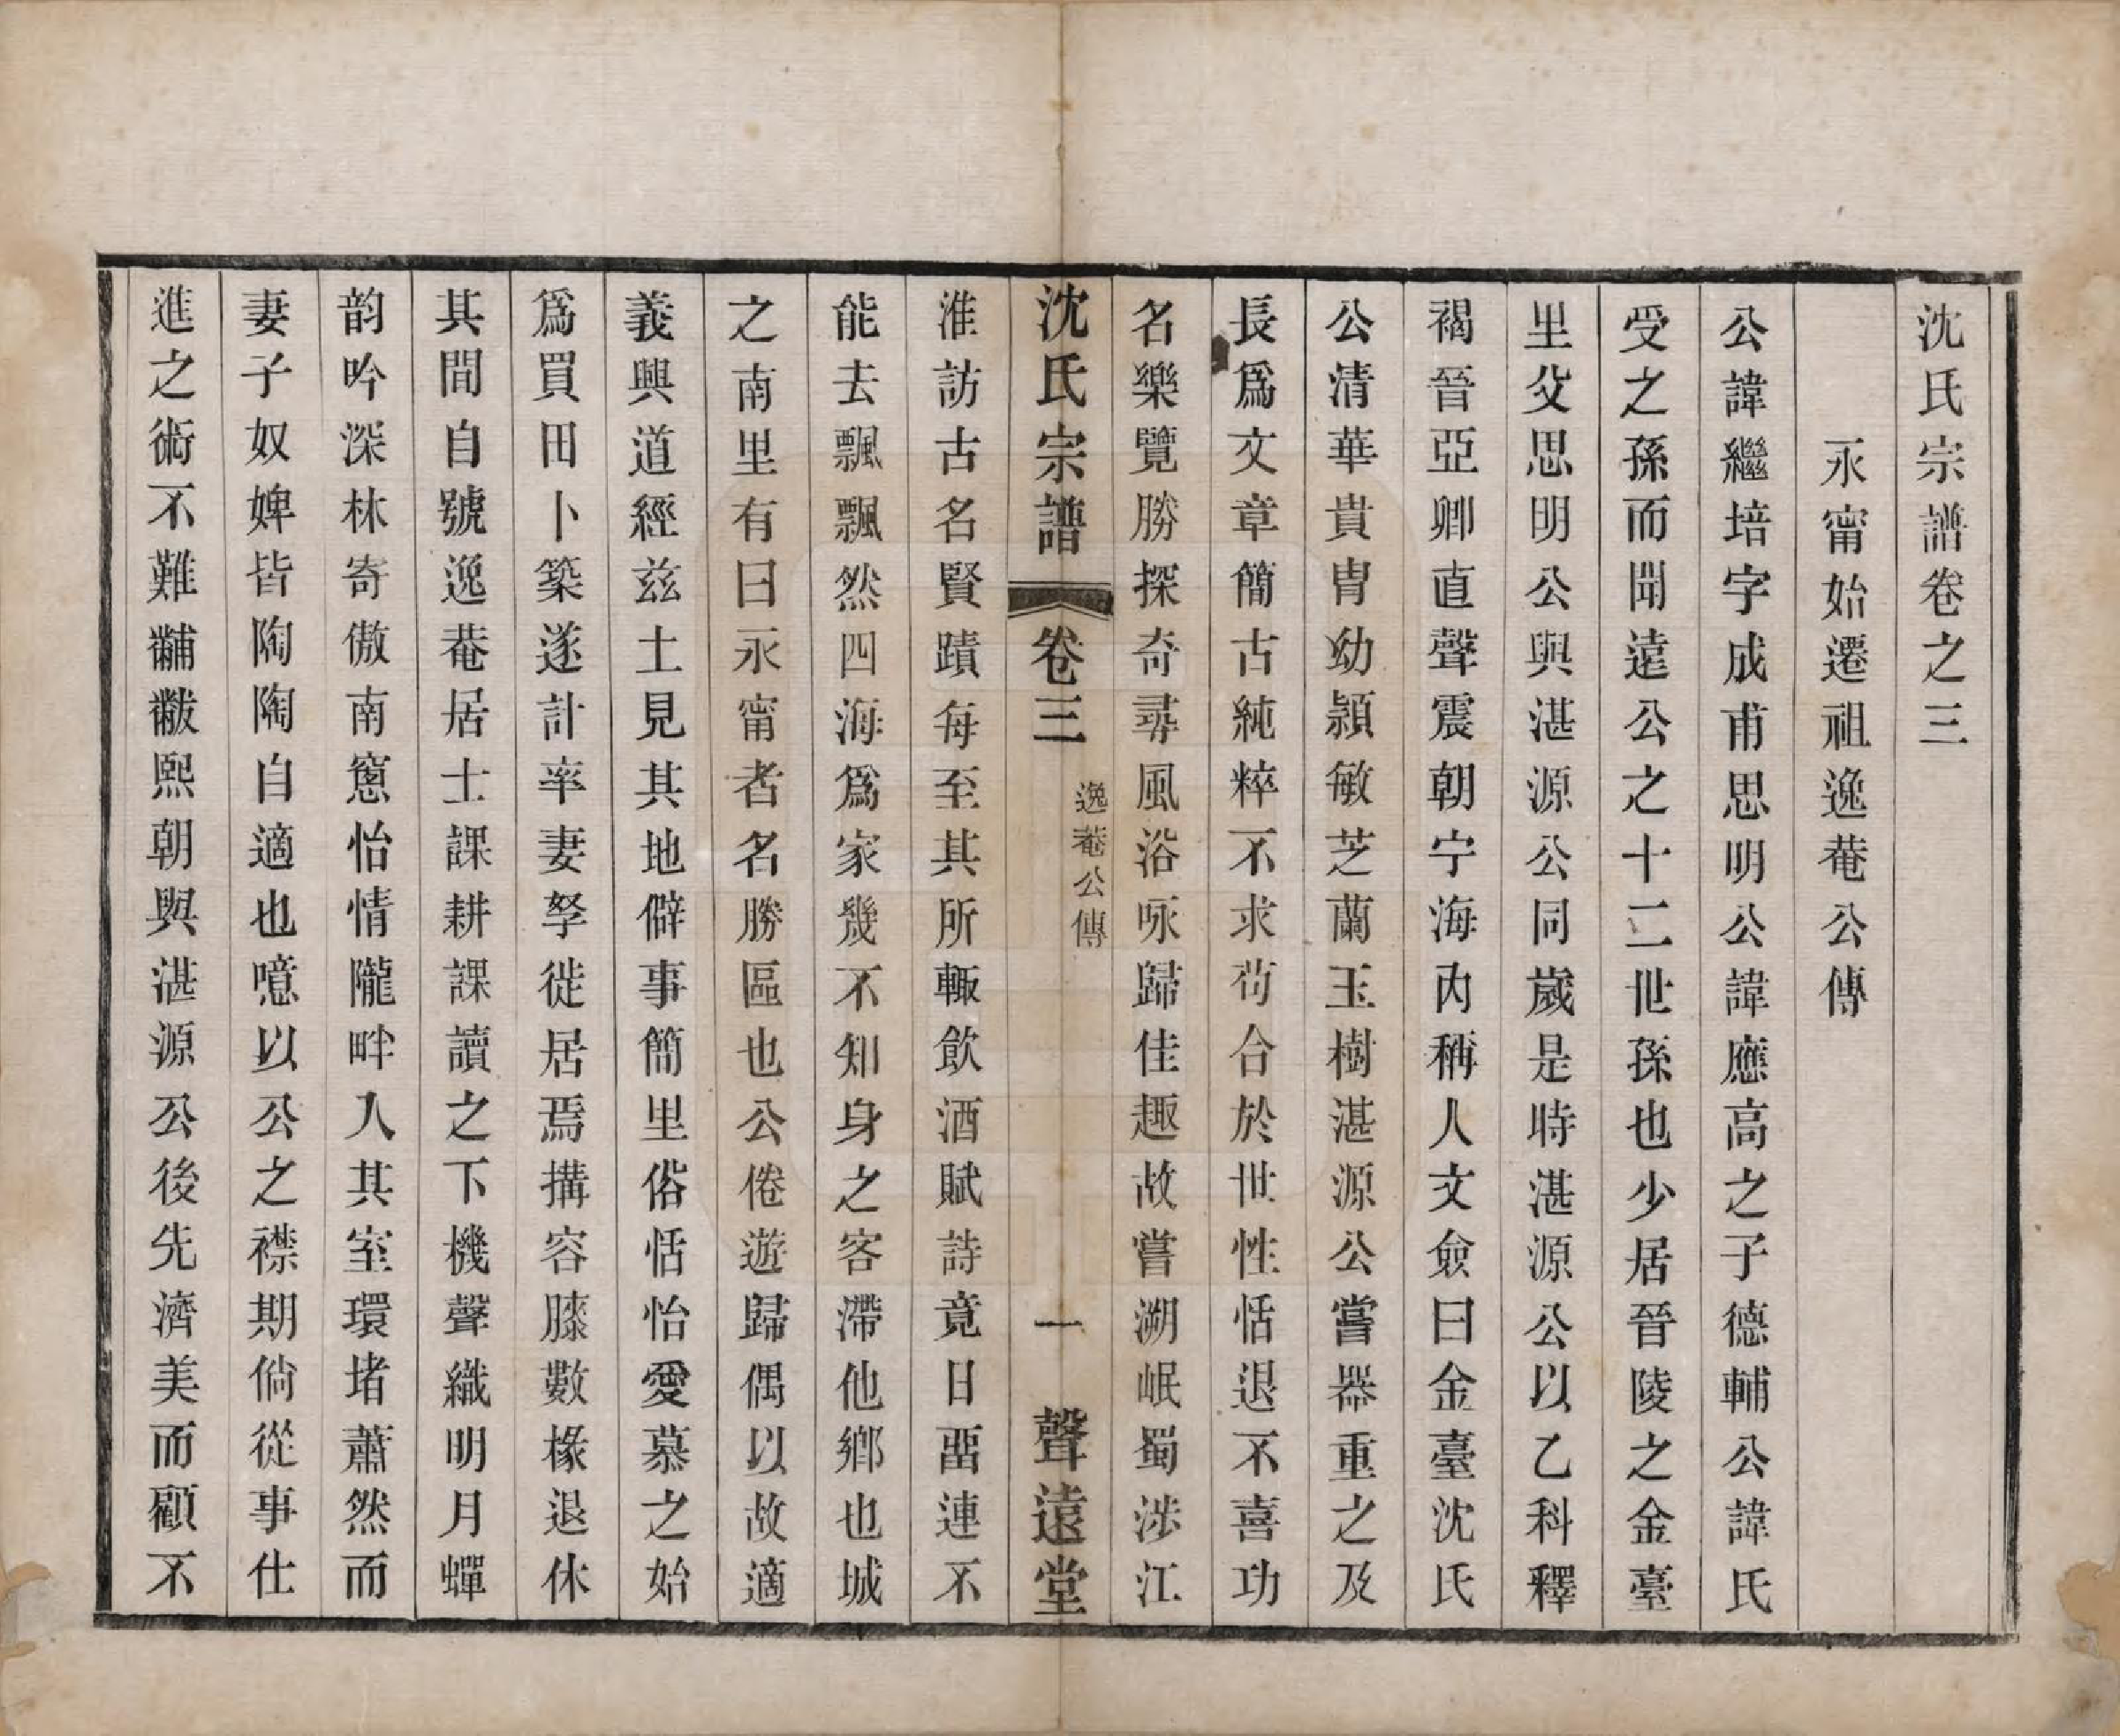 沈氏宗譜卷之三
永甯始遷祖逸菴公傳
公諱繼培字成甫思明公諱應高之子德輔公諱氏
受之孫而聞遠公之十二世孫也少居晉陵之金臺
里父思明公與湛源公同歲是時湛源公以乙科釋
褐晉亞卿直聲震朝宁海內稱人文僉曰金臺沈氏
公清華貴胄幼穎敏芝蘭玉樹湛源公嘗器重之及
長爲文章簡古純粹不求苟合於世性恬退不喜功
名樂覽勝探奇尋風浴咏歸佳趣故嘗溯岷蜀涉江
沈氏宗譜 卷三 逸菴公傳 一 聲遠堂
淮訪古名賢蹟每至其所輙飲酒賦詩竟日畱連不
能去飄飄然四海爲家幾不知身之客滯他鄉也城
之南里有曰永甯者名勝區也公倦遊歸偶以故適
義興道經兹土見其地僻事簡里俗恬怡愛慕之始
爲買田卜築遂計率妻孥徙居焉搆容膝數椽退休
其間自號逸菴居士課耕課讀之下機聲織明月蟬
韵吟深林寄傲南窻怡情隴畔人其室環堵蕭然而
妻子奴婢皆陶陶自適也噫以公之襟期倘從事仕
進之術不難黼黻熙朝與湛源公後先濟美而顧不